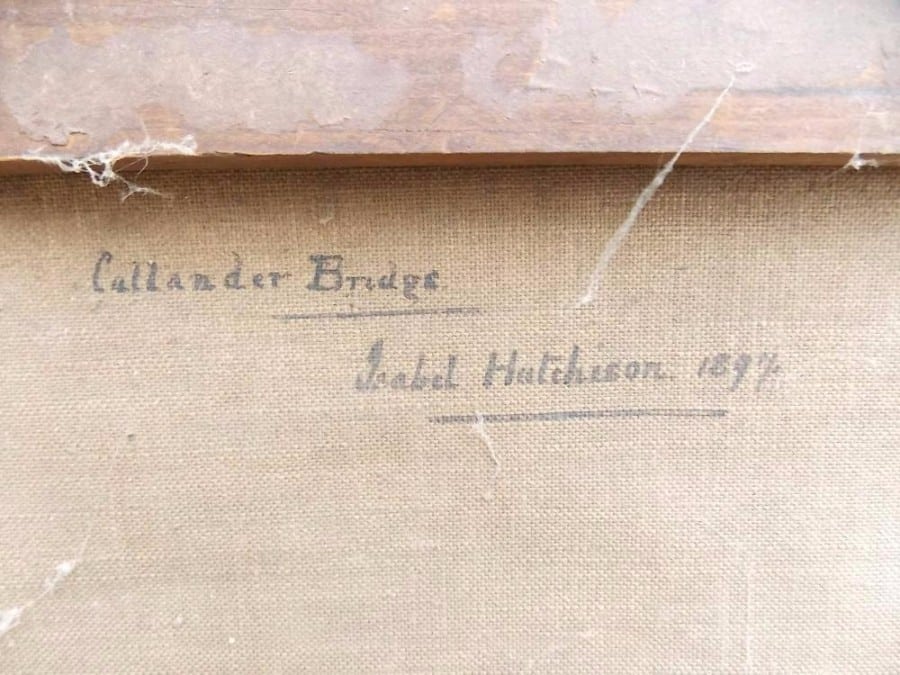 Callander Bridge
Isabel Hutchison 1897